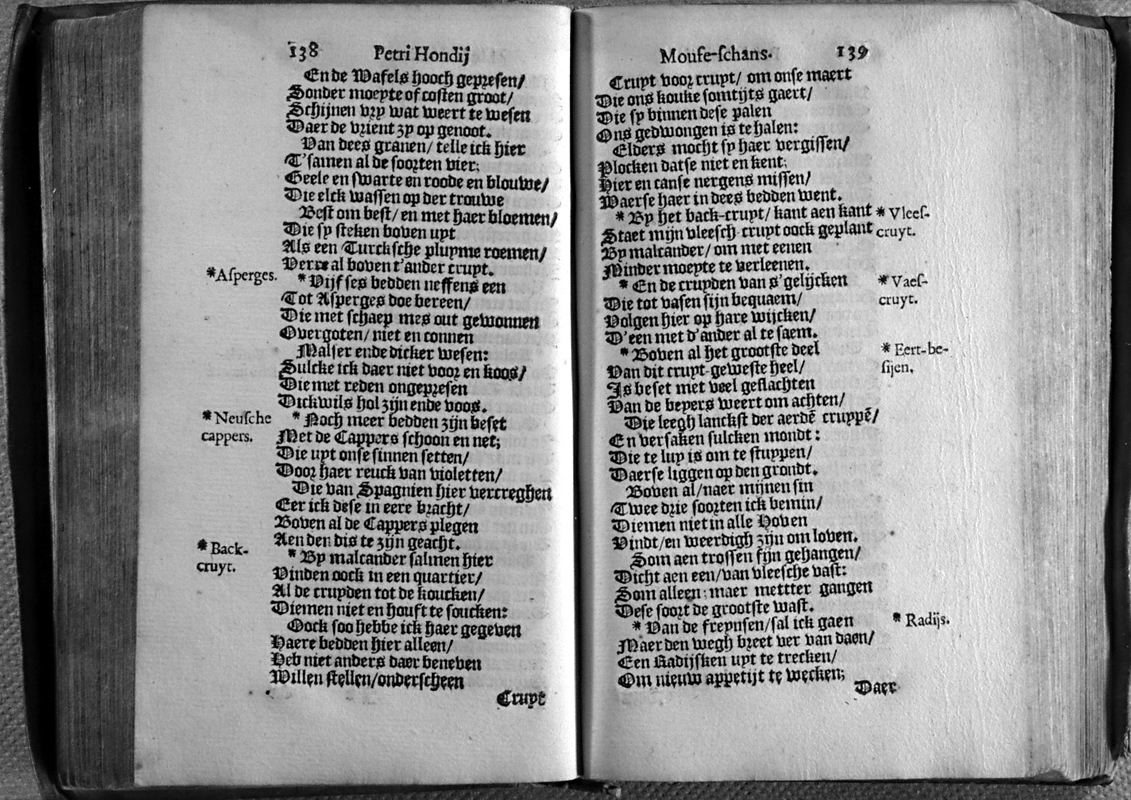 138 Petri Hondij
Ende Wafels hooch gepresen/
Sonder moeyte of costen groot/
Schijnen vry wat weert te wesen
Daer de vrient zy op genoot.
Van dees granen/ telle ick hier
T'samen al de soorten vier;
Geele en swarte en roode en blouwe/
Die elck wassen op der trouwe
Best om best/ en met haer bloemen/
Die sy steken boven uyt
Als een Turcksche pluyme roemen/
Verre al boven t'ander cruyt.
*Asperges.
*Vijf ses bedden neffens een
Tot Asperges doe bereen/
Die met schaep mes out gewonnen
Overgoten/ niet en connen
Malser ende dicker wesen:
Sulcke ick daer niet voor en koos/
Die met reden ongepresen
Dickwils hol zijn ende voos.
*Neusche
cappers.
* Noch meer bedden zijn beset
Met de Cappers schoon en net;
Die uyt onse sinnen setten/
Door haer reuck van violetten/
Die van Spagnien hier vercreghen
Eer ick dese in eere bracht/
Boven al de Cappers plegen
Aen den dis te zijn geacht.
*Back-
cruyt.
* By malcander salmen hier
Vinden oock in een quartier/
Al de cruyden tot de koucken/
Diemen niet en houft te soucken:
Oock soo hebbe ick haer gegeven
Haere bedden hier alleen/
Heb niet anders daer beneven
Willen stellen/onderscheen
Cruyt
Mouse-schans. 139
Cruyt voor cruyt/ om onse maert
Die ons kouke somtijts gaert/
Die sy binnen dese palen
Ons gedwongen is te halen:
Elders mocht sy haer vergissen/
Plocken datse niet en kent;
Hier en canse nergens missen/
Waerse haer in dees bedden went.
* By het back-cruyt/ kant aen kant
* Vlees-
cruyt.
Staet mijn vleesch-cruyt oock geplant
By malcander/ om met eenen
Minder moeyte te verleenen.
* En de cruyden van s'gelijcken
* Vaes-
cruyt.
Die tot vasen sijn bequaem/
Volgen hier op hare wijcken/
D'een met d'ander al te saem.
* Boven al het grootste deel
* Eert-be-
sijen.
Van dit cruyt-geweste heel/
Is beset met veel geslachten
Van de beyers weert om achten/
Die leegh lanckst der aerdē cruypē/
En versaken sulcken mondt:
Die te luy is om te stuypen/
Daerse liggen op den grondt.
Boven al/naer mijnen sin
Twee drie soorten ick bemin/
Diemen niet in alle Hoven
Vindt/en weerdigh zijn om loven.
Som aen trossen sijn gehangen/
Dicht aen een/van vleesche vast:
Som alleen: maer mettter gangen
Dese soort de grootste wast.
* Van de freynsen/sal ick gaen
* Radijs.
Maer den wegh breet ver van daen/
Een Radijsken uyt te trecken/
Om nieuw appetijt te wecken;
Daer